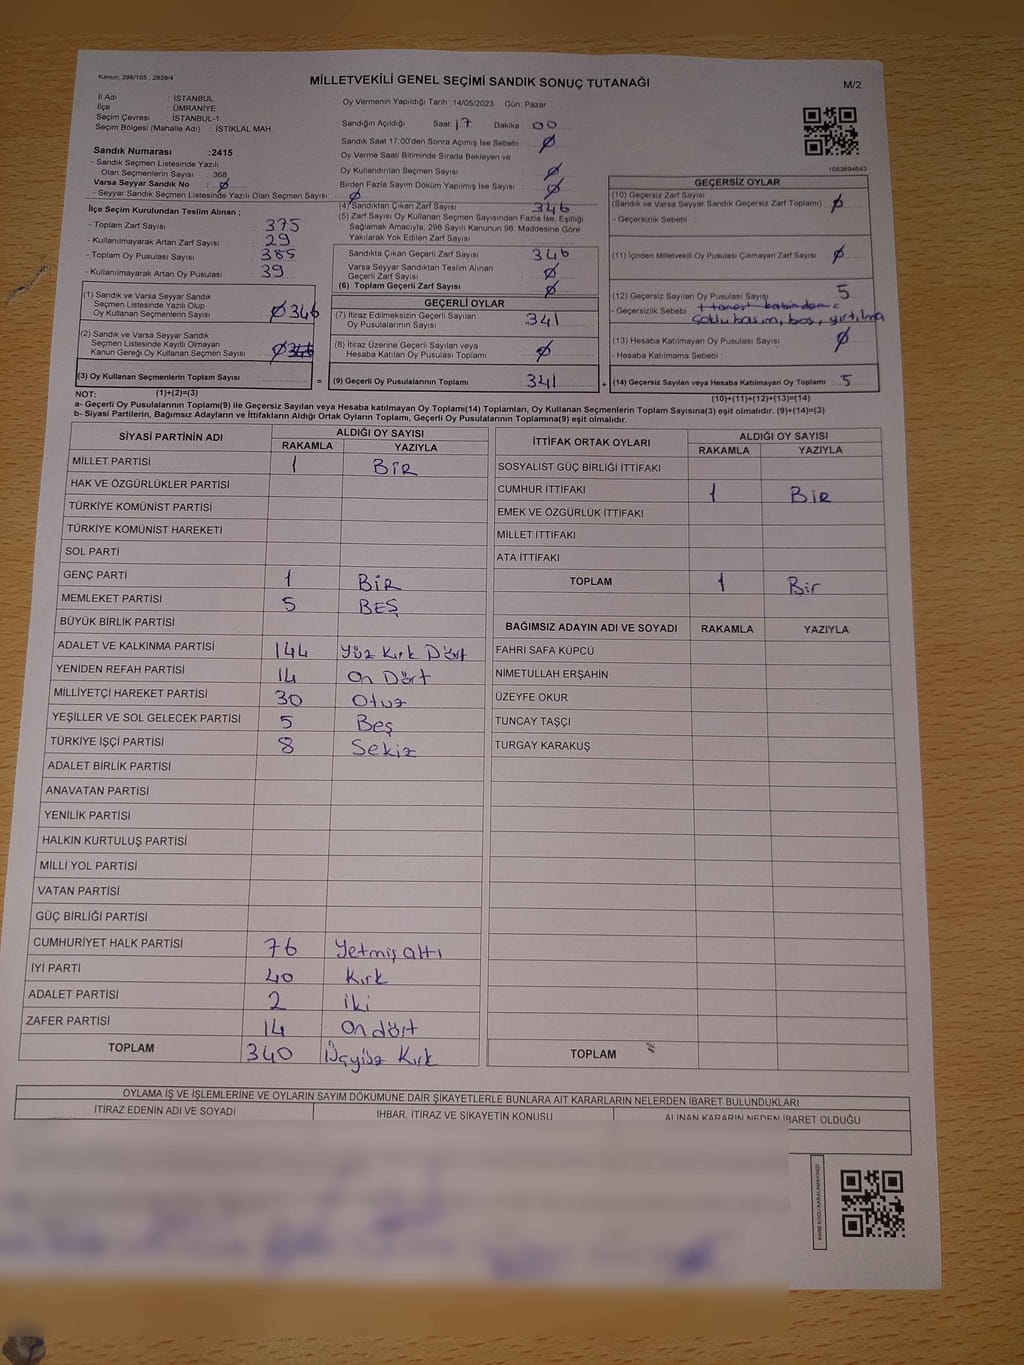 Kanun; 298/105 ; 2839/4
MİLLETVEKİLİ GENEL SEÇİMİ SANDIK SONUÇ TUTANAĞI
M/2
İl Adı : İSTANBUL
İlçe : ÜMRANİYE
Seçim Çevresi : İSTANBUL-1
Seçim Bölgesi (Mahalle Adı) : İSTİKLAL MAH.
Sandık Numarası :2415
- Sandık Seçmen Listesinde Yazılı
Olan Seçmenlerin Sayısı : 368
Varsa Seyyar Sandık No : Ø
- Seyyar Sandık Seçmen Listesinde Yazılı Olan Seçmen Sayısı: Ø
İlçe Seçim Kurulundan Teslim Alınan ;
- Toplam Zarf Sayısı : 375
- Kullanılmayarak Artan Zarf Sayısı : 29
- Toplam Oy Pusulası Sayısı : 385
- Kullanılmayarak Artan Oy Pusulası : 39
(1) Sandık ve Varsa Seyyar Sandık
Seçmen Listesinde Yazılı Olup
Oy Kullanan Seçmenlerin Sayısı : Ø 346
(2) Sandık ve Varsa Seyyar Sandık
Seçmen Listesinde Kayıtlı Olmayan
Kanun Gereği Oy Kullanan Seçmen Sayısı : Ø 346
(3) Oy Kullanan Seçmenlerin Toplam Sayısı :
(1)+(2)=(3)
Oy Vermenin Yapıldığı Tarih :14/05/2023 Gün: Pazar
Sandığın Açıldığı Saat: 17 Dakika : 00
Sandık Saat 17:00'den Sonra Açımış İse Sebebi : Ø
Oy Verme Saati Bitiminde Sırada Bekleyen ve
Oy Kullandırılan Seçmen Sayısı : Ø
Birden Fazla Sayım Döküm Yapılmış İse Sayısı : Ø
(4) Sandıktan Çıkan Zarf Sayısı : 346
(5) Zarf Sayısı Oy Kullanan Seçmen Sayısından Fazla İse, Eşitliği
Sağlamak Amacıyla, 298 Sayılı Kanunun 98. Maddesine Göre
Yakılarak Yok Edilen Zarf Sayısı :
Sandıkta Çıkan Geçerli Zarf Sayısı : 346
Varsa Seyyar Sandıktan Teslim Alınan
Geçerli Zarf Sayısı : Ø
(6) Toplam Geçerli Zarf Sayısı : Ø
GEÇERLİ OYLAR
(7) İtiraz Edilmeksizin Geçerli Sayılan
Oy Pusulalarının Sayısı : 341
(8) İtiraz Üzerine Geçerli Sayılan veya
Hesaba Katılan Oy Pusulası Toplamı : Ø
= (9) Geçerli Oy Pusulalarının Toplamı : 341
1083694643
GEÇERSİZ OYLAR
(10) Geçersiz Zarf Sayısı
(Sandık ve Varsa Seyyar Sandık Geçersiz Zarf Toplamı) : Ø
- Geçersizlik Sebebi :
(11) İçinden Milletvekili Oy Pusulası Çıkmayan Zarf Sayısı : Ø
(12) Geçersiz Sayılan Oy Pusulası Sayısı : 5
- Geçersizlik Sebebi :
çoklu basım, boş, yırtılma
(13) Hesaba Katılmayan Oy Pusulası Sayısı : Ø
- Hesaba Katılmama Sebebi :
+ (14) Geçersiz Sayılan veya Hesaba Katılmayan Oy Toplamı : 5
(10)+(11)+(12)+(13)=(14)
NOT:
a- Geçerli Oy Pusulalarının Toplamı(9) ile Geçersiz Sayılan veya Hesaba katılmayan Oy Toplamı(14) Toplamları, Oy Kullanan Seçmenlerin Toplam Sayısına(3) eşit olmalıdır. (9)+(14)=(3)
b- Siyasi Partilerin, Bağımsız Adayların ve İttifakların Aldığı Ortak Oyların Toplamı, Geçerli Oy Pusulalarının Toplamına(9) eşit olmalıdır.
SİYASİ PARTİNİN ADI ALDIĞI OY SAYISI
RAKAMLA YAZIYLA
MİLLET PARTİSİ 1 BİR
HAK VE ÖZGÜRLÜKLER PARTİSİ
TÜRKİYE KOMÜNİST PARTİSİ
TÜRKİYE KOMÜNİST HAREKETİ
SOL PARTİ
GENÇ PARTİ 1 BİR
MEMLEKET PARTİSİ 5 BEŞ
BÜYÜK BİRLİK PARTİSİ
ADALET VE KALKINMA PARTİSİ 144 Yüz Kırk Dört
YENİDEN REFAH PARTİSİ 14 On Dört
MİLLİYETÇİ HAREKET PARTİSİ 30 Otuz
YEŞİLLER VE SOL GELECEK PARTİSİ 5 Beş
TÜRKİYE İŞÇİ PARTİSİ 8 Sekiz
ADALET BİRLİK PARTİSİ
ANAVATAN PARTİSİ
YENİLİK PARTİSİ
HALKIN KURTULUŞ PARTİSİ
MİLLİ YOL PARTİSİ
VATAN PARTİSİ
GÜÇ BİRLİĞİ PARTİSİ
CUMHURİYET HALK PARTİSİ 76 Yetmiş altı
İYİ PARTİ 40 Kırk
ADALET PARTİSİ 2 iki
ZAFER PARTİSİ 14 On dört
TOPLAM 340 Üçyüz Kırk
İTTİFAK ORTAK OYLARI ALDIĞI OY SAYISI
RAKAMLA YAZIYLA
SOSYALİST GÜÇ BİRLİĞİ İTTİFAKI
CUMHUR İTTİFAKI 1 Bir
EMEK VE ÖZGÜRLÜK İTTİFAKI
MİLLET İTTİFAKI
ATA İTTİFAKI
TOPLAM 1 Bir
BAĞIMSIZ ADAYIN ADI VE SOYADI RAKAMLA YAZIYLA
FAHRİ SAFA KÜPCÜ
NİMETULLAH ERŞAHİN
ÜZEYFE OKUR
TUNCAY TAŞÇI
TURGAY KARAKUŞ
TOPLAM
OYLAMA İŞ VE İŞLEMLERİNE VE OYLARIN SAYIM DÖKÜMÜNE DAİR ŞİKAYETLERLE BUNLARA AİT KARARLARIN NELERDEN İBARET BULUNDUKLARI
İTİRAZ EDENİN ADI VE SOYADI İHBAR, İTİRAZ VE ŞİKAYETİN KONUSU ALINAN KARARIN NEDEN İBARET OLDUĞU
KARE KODU KARALAMAYINIZ!